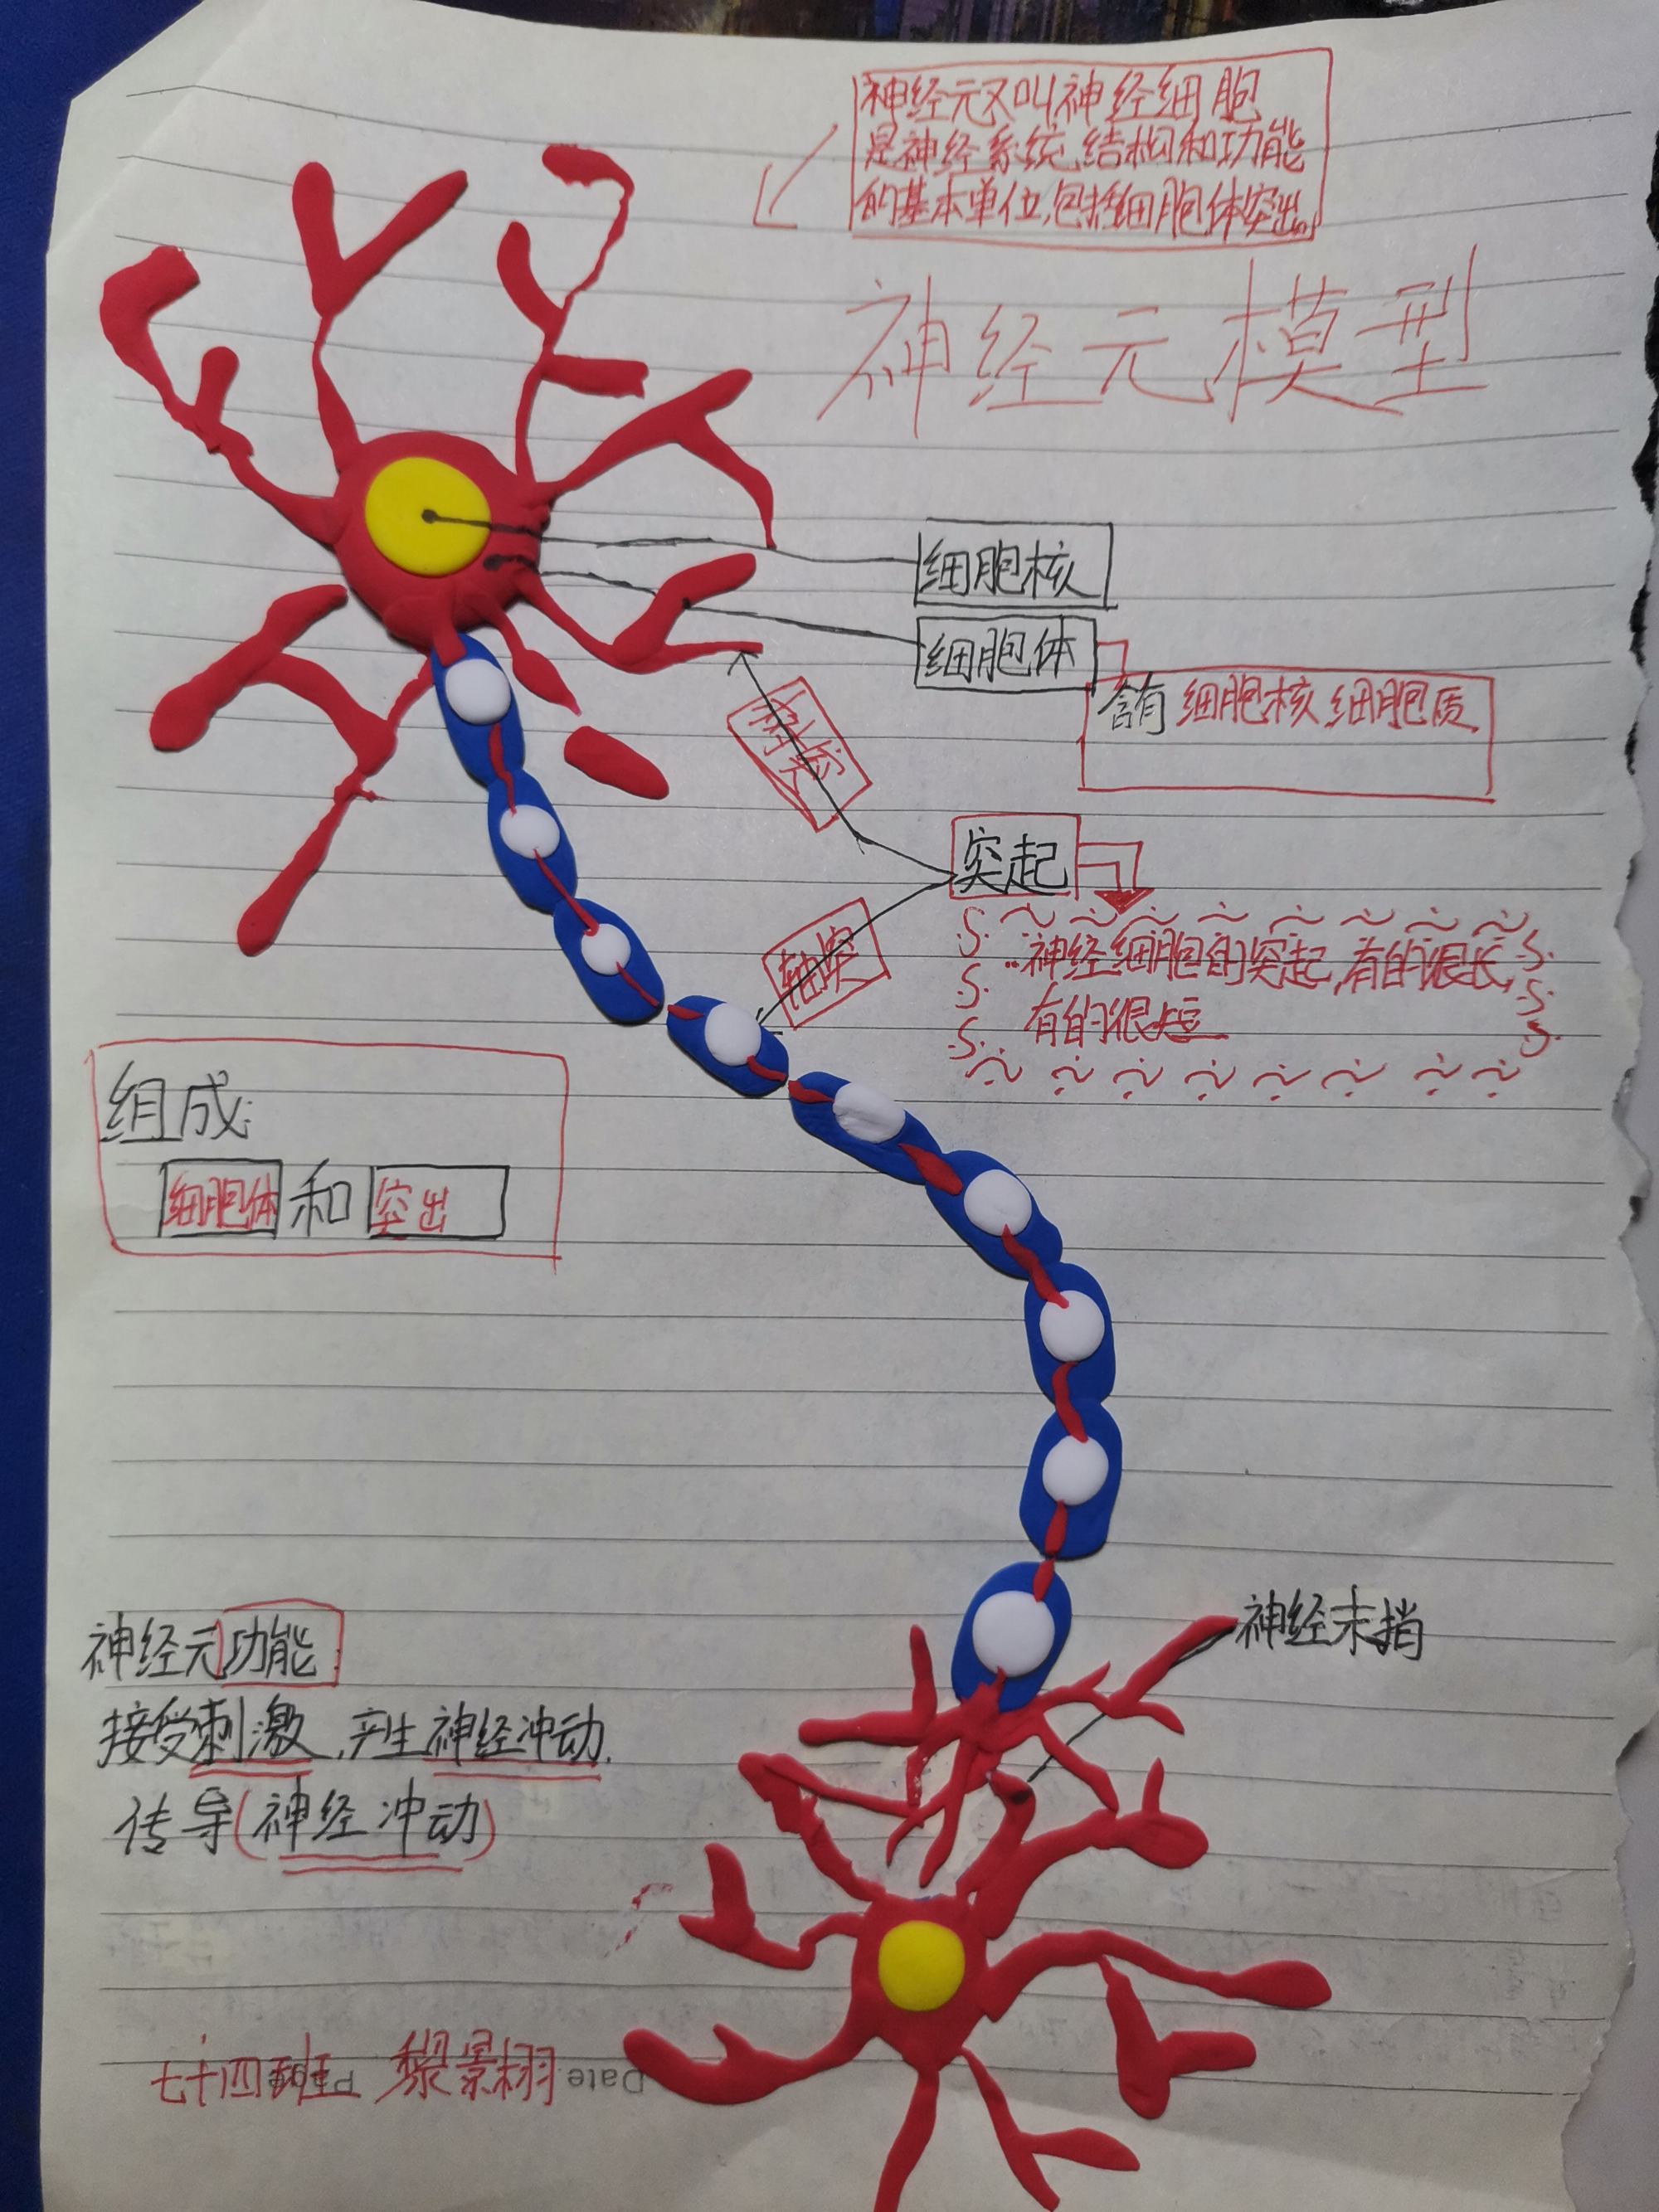 神经元又叫神经细胞
是神经系统结构和功能
的基本单位,包括细胞体突出
神经元模型
细胞核
细胞体
含有细胞核细胞质
树突
突起
轴突
神经细胞的突起,有的很长,
有的很短
组成:
细胞体和突出
神经元功能
接受刺激,产生神经冲动.
传导(神经冲动)
神经末捎
七十四班 黎景栩
Date